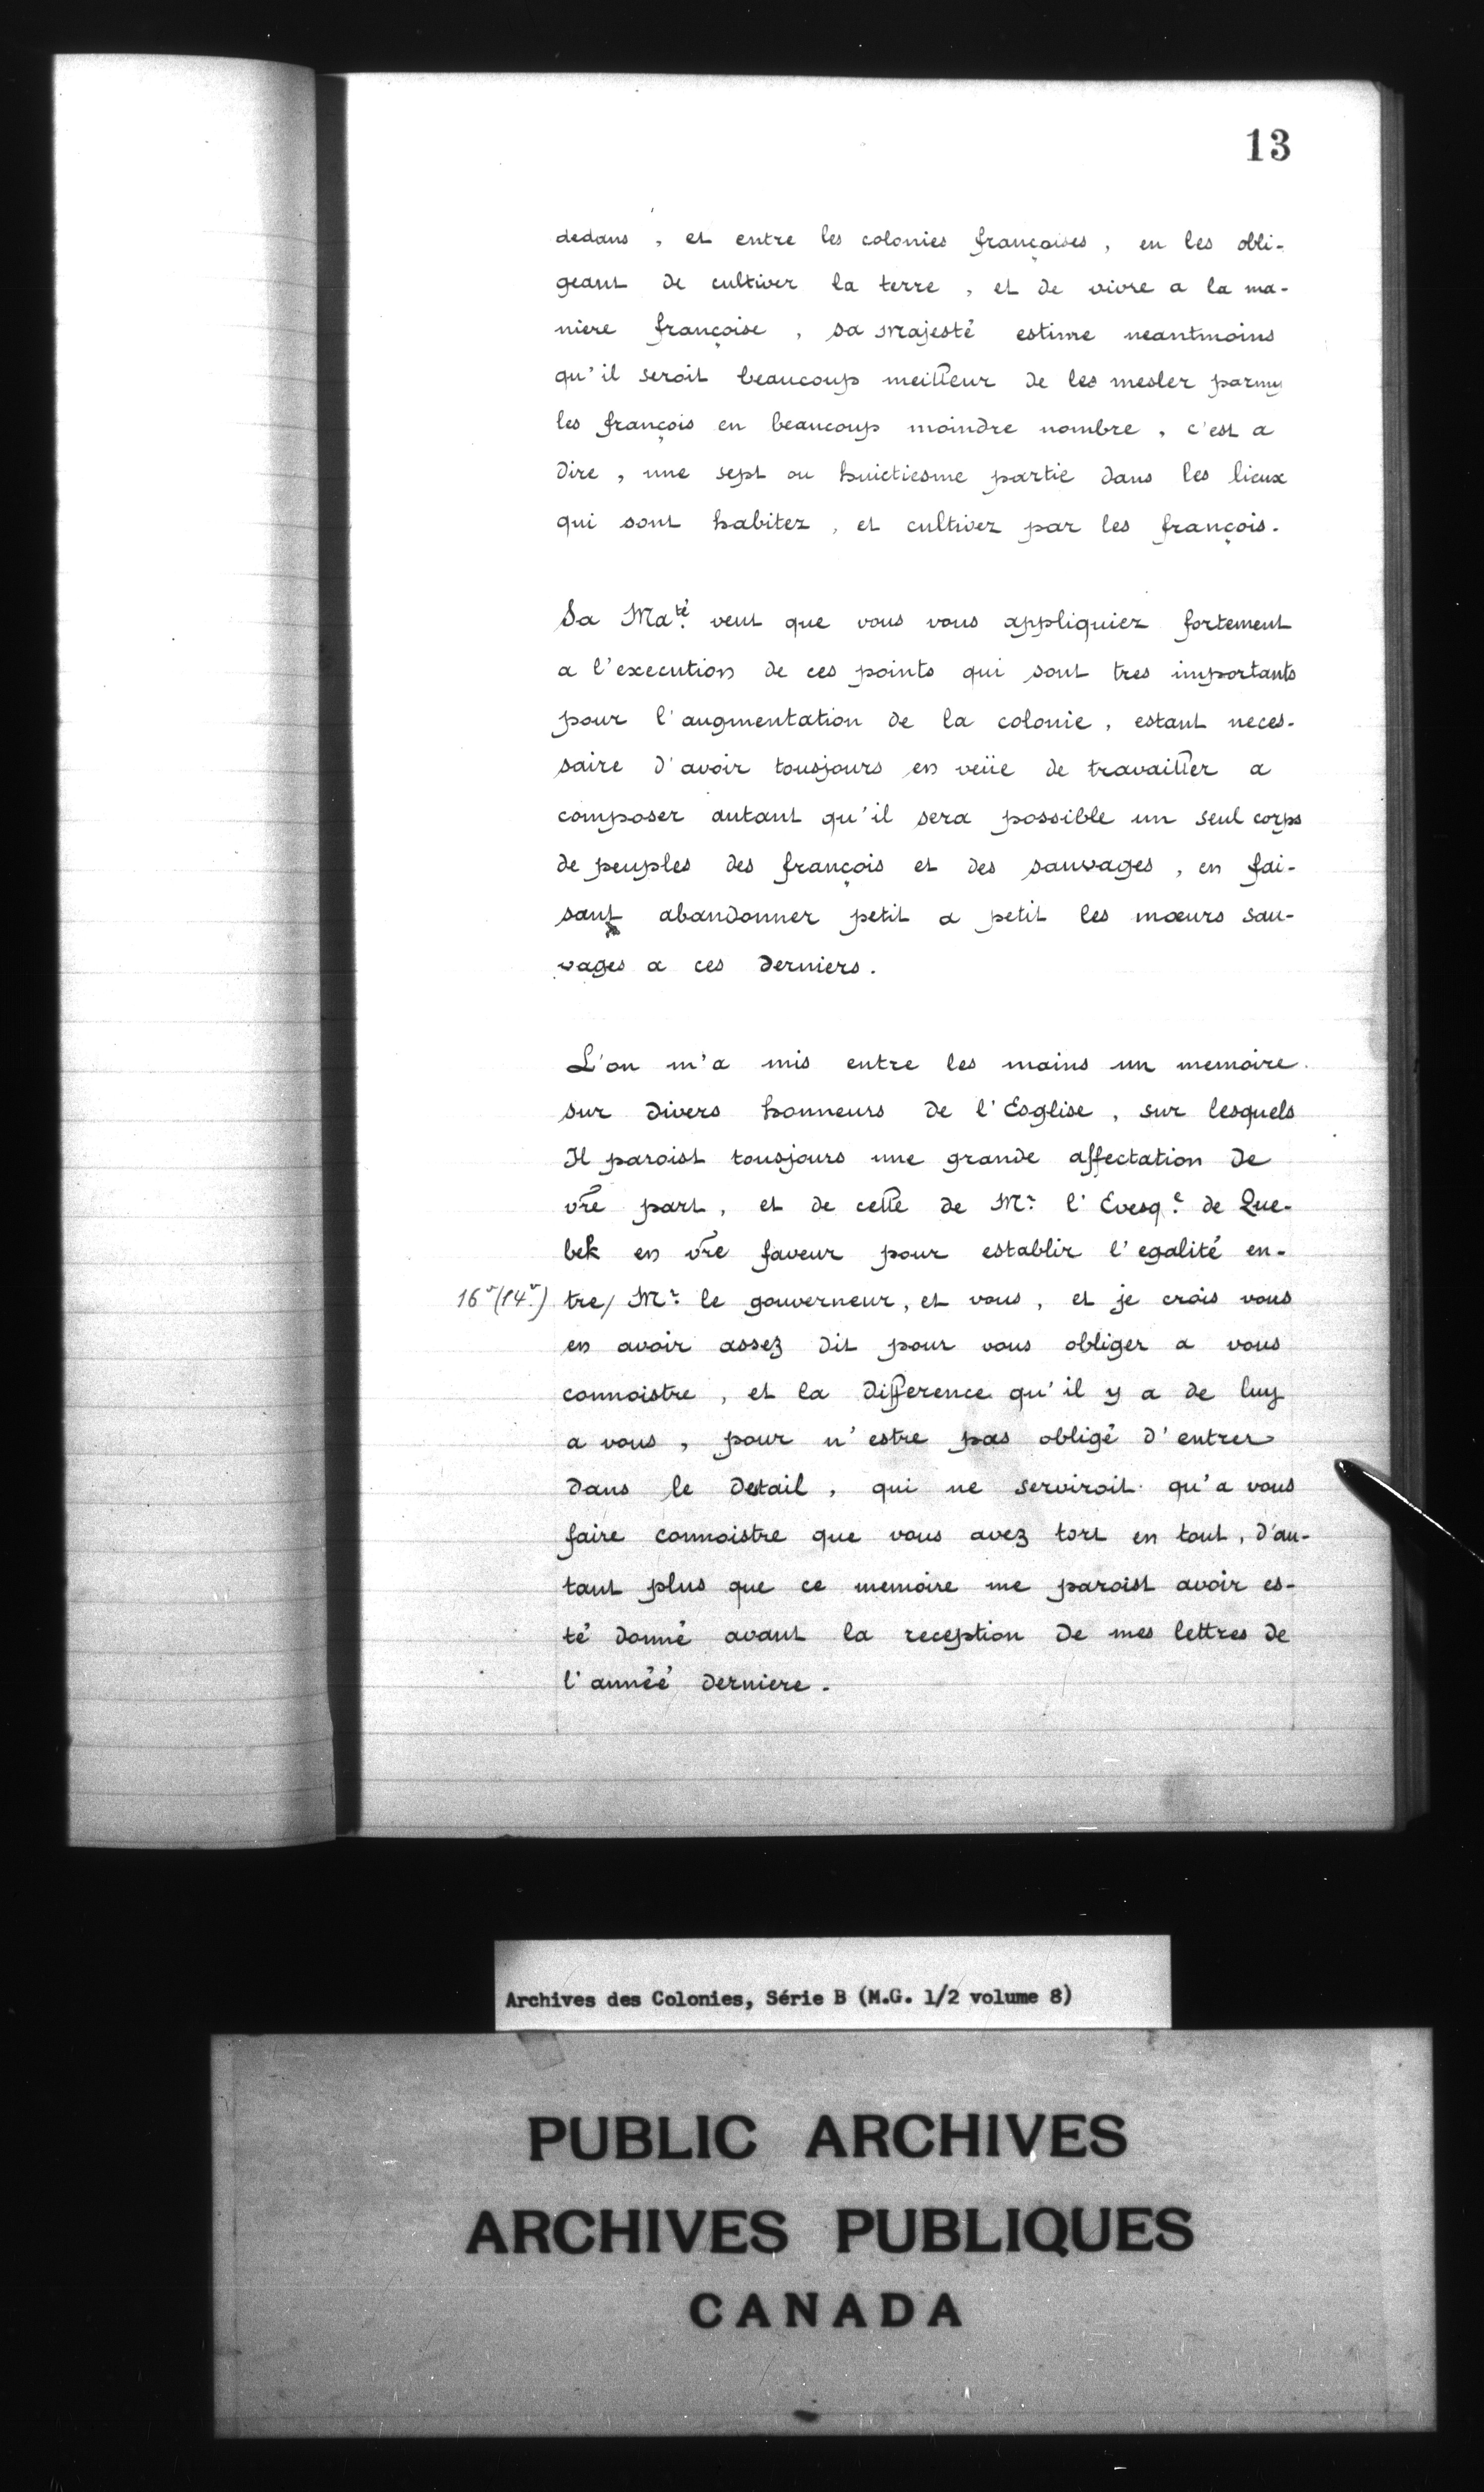 13
dedans , et entre les colonies françoises , en les obli-
geant de cultiver la terre , et de vivre a la ma-
niere françoise , sa majesté estime neantmoins
qu'il seroit beaucoup meilleur de les mesler parmy
les françois en beaucoup moindre nombre , c'est a
dire , une sept ou huictiesme partie dans les lieux
qui sont habitez , et cultivez par les françois .
Sa Maté. veut que vous vous appliquiez fortement
a l'execution de ces points qui sont tres importants
pour l'augmentation de la colonie , estant neces-
saire d'avoir tousjours en veüe de travailler a
composer autant qu'il sera possible un seul corps
de peuples des françois et des sauvages , en fai-
sant abandonner petit a petit les mœurs sau-
vages a ces derniers .
L'on m'a mis entre les mains un memoire
sur divers honneurs de l'Esglise , sur lesquels
Il paroist tousjours une grande affectation de
vr̃e part , et de celle de Mr. l'Evesq.e de Que-
bek en vr̃e faveur pour establir l'egalité en-
16v (14v.) tre/ Mr. le gouverneur, et vous , et je crois vous
en avoir assez dit pour vous obliger a vous
connoistre , et la difference qu'il y a de luy
a vous , pour n'estre pas obligé d'entrer
dans le detail , qui ne serviroit qu'a vous
faire connoistre que vous avez tort en tout , d'au-
tant plus que ce memoire me paroist avoir es-
té donné avant la reception de mes lettres de
l'annéé derniere .
Archives des Colonies, Série B (M.G. 1/2 volume 8)
PUBLIC ARCHIVES
ARCHIVES PUBLIQUES
CANADA